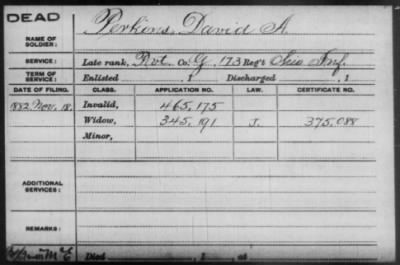 DEAD
NAME OF SOLDIER: Perkins, David A.
SERVICE: Late rank, Pvt. Co. G, 173 Reg't Ohio Inf.
TERM OF SERVICE: Enlisted , 1 , Discharged , 1
DATE OF FILING. CLASS. APPLICATION NO. LAW. CERTIFICATE NO.
1882, Nov. 18. Invalid, 465,175
Widow, 345,191 J. 375,088
Minor,
ADDITIONAL SERVICES:
REMARKS:
Died , 1 , at